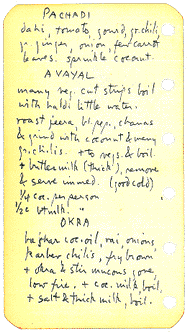 PACHADI
dahi, tomato, gourd, gr. chili
gr. ginger, onion, few carrot
leaves. sprinkle coconut.
AVAYAL
many veg. cut strips boil
with haldi little water.
roast jeera bl. pep., channas
& grind with coconut & many
gr. chilis. + to vegs. & boil.
+ buttermilk (thick), remove
& serve immed. (good cold)
1/4 coc. per person
1/2 c btmilk. "
OKRA
baghar coc. oil, rai, onions,
& arbor chilis, fry brown
+ okra & stir mucous gone
low fire. + coc. milk, boil,
+ salt & thick milk, boil.